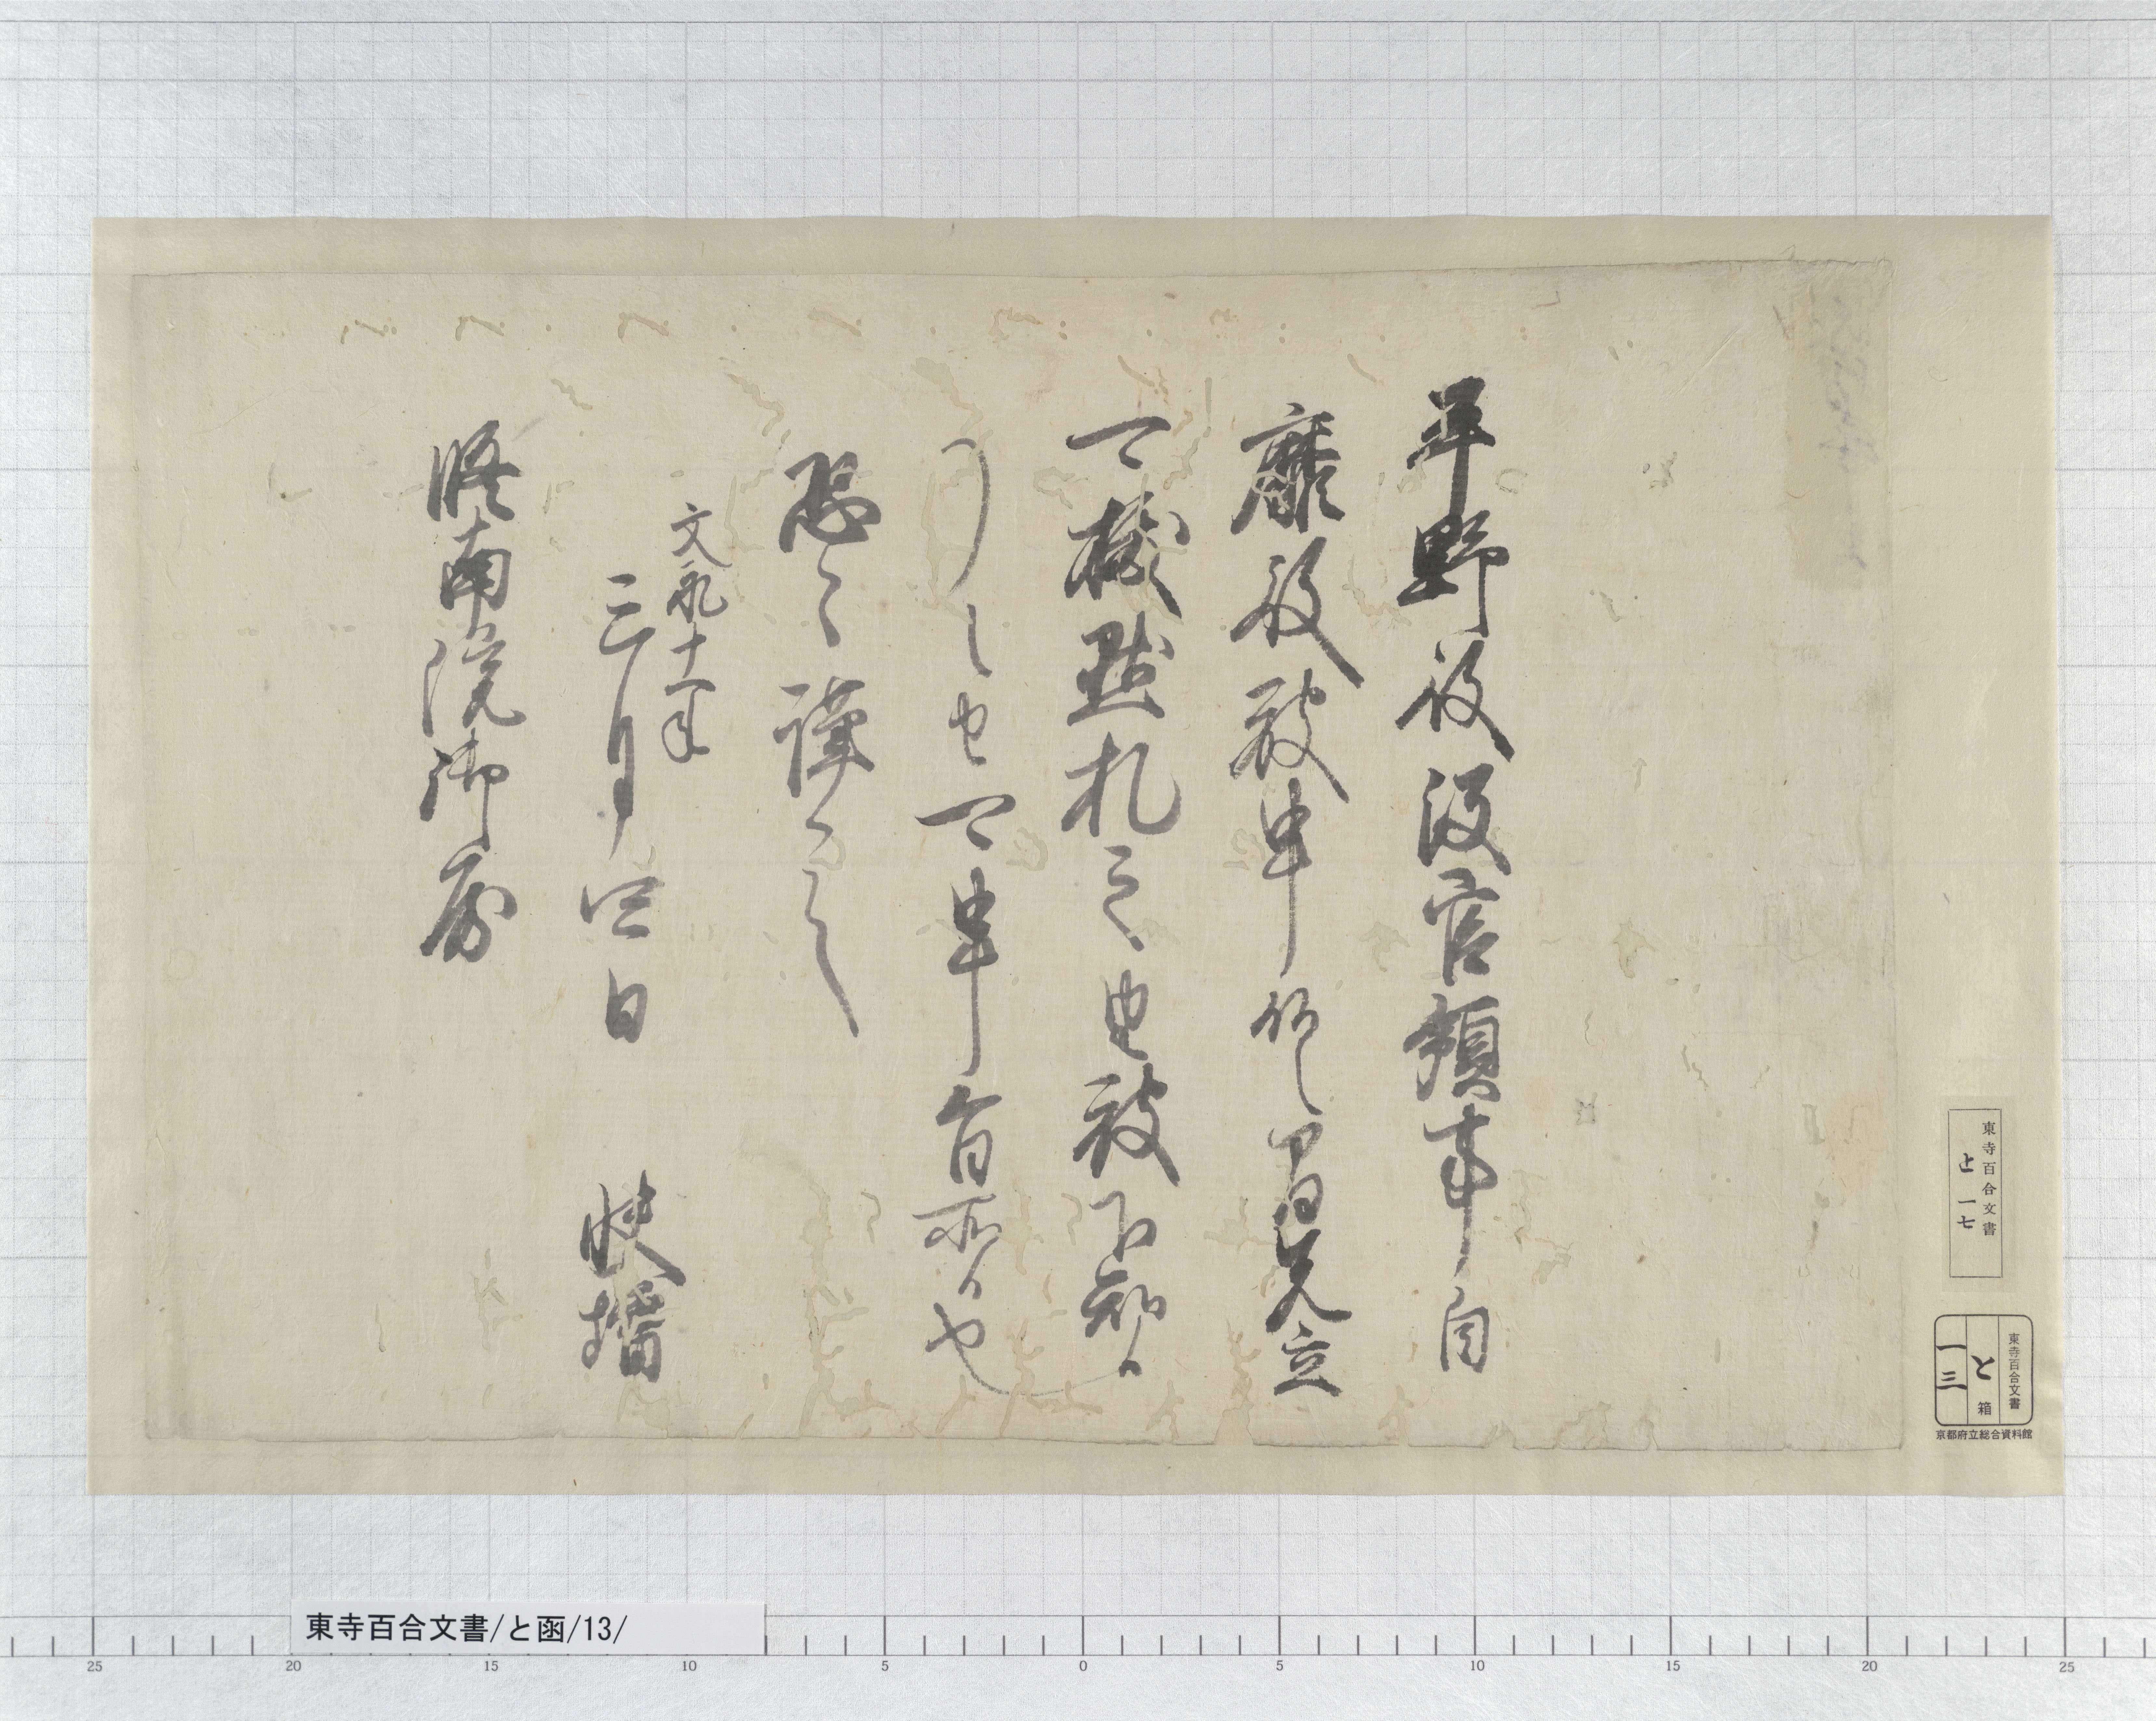 平野殿没官領事自
殿被申候之間先立
可拔點札之由被下知候
了之由可申旨所候也
恐々謹言
文永十一年
三月四日 快
勝南院御房
東寺百合文書
と一七
東寺百合文書
と箱
一三
京都府立総合資料館
東寺百合文書/と函/13/
25 20 15 10 5 0 5 10 15 20 25